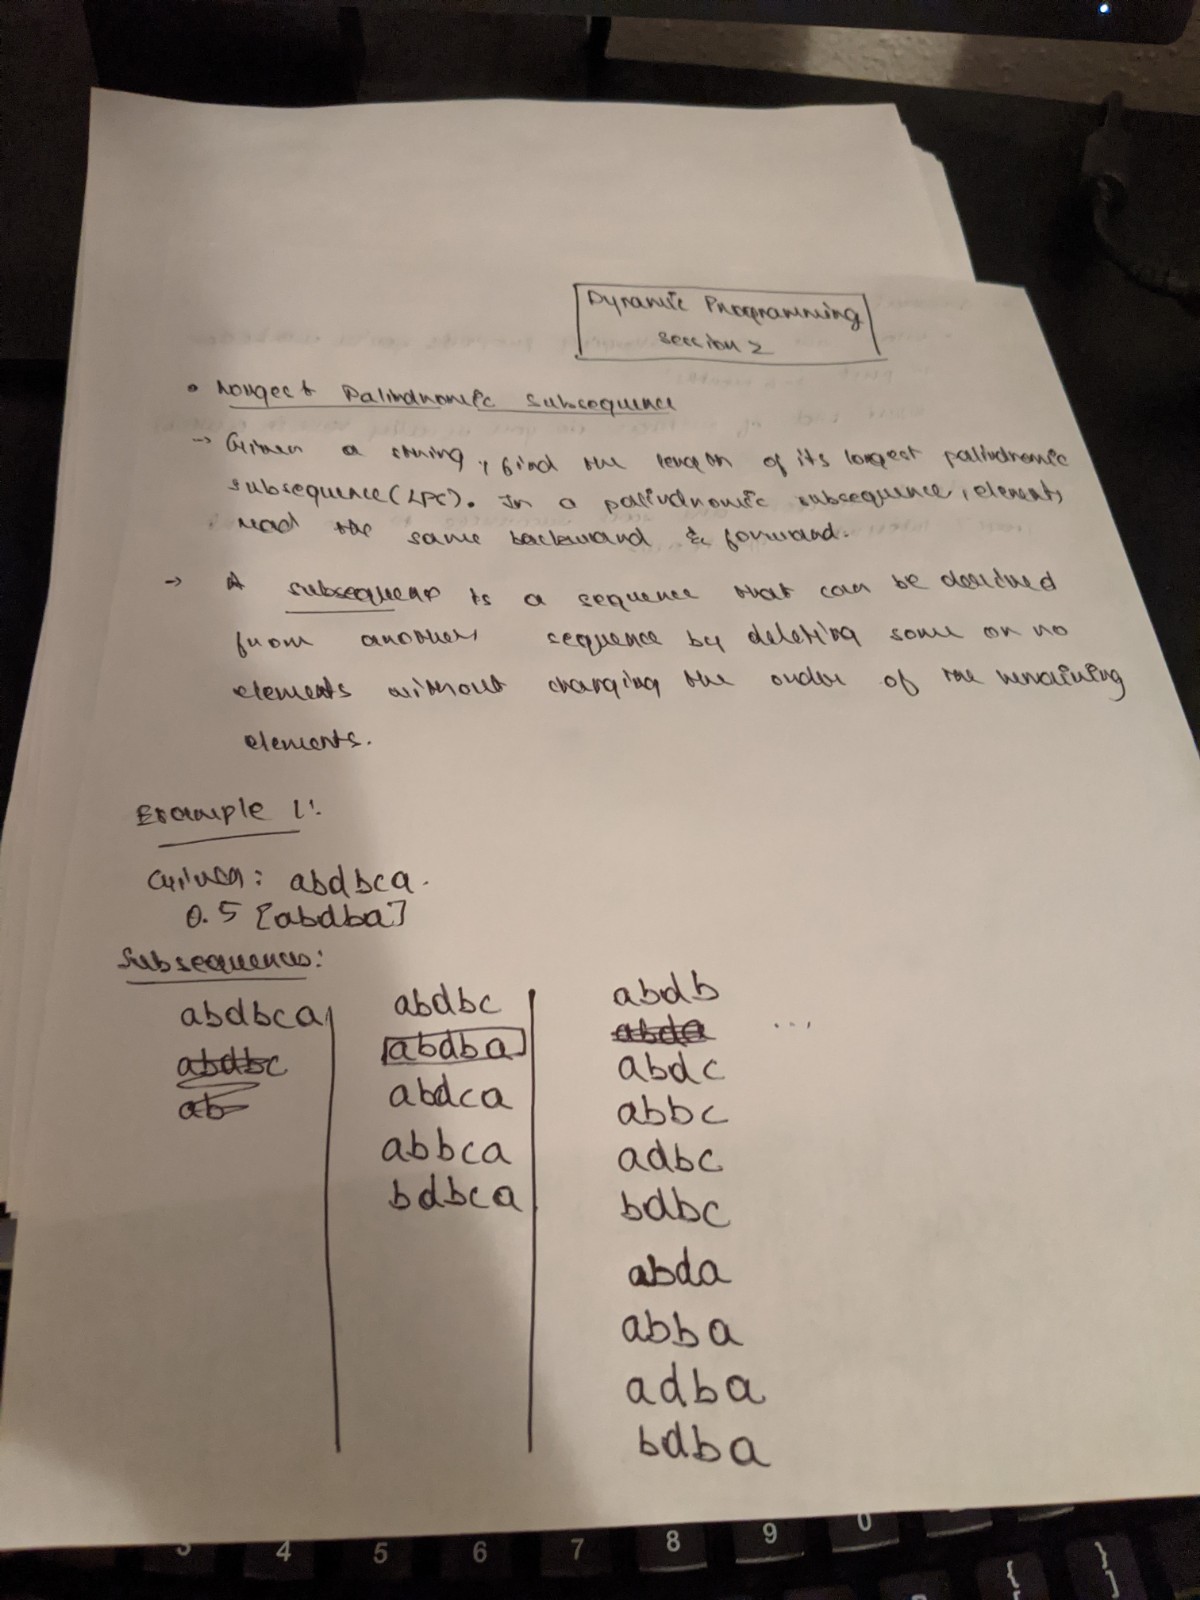 Dynamic Programming
Section 2
• Longest Palindromic Subsequence
→ Given a string, find the length of its longest palindromic
subsequence (LPS). In a palindromic subsequence, elements
read the same backward & forward.
→ A subsequence is a sequence that can be derived
from another sequence by deleting some or no
elements without changing the order of the remaining
elements.
Example 1:
Given: abdbca.
O. 5 [abdba]
Subsequences:
abdbca
abdbc
ab
abdbc
abdba
abdca
abbca
bdbca
abdb
abda
abdc
abbc
adbc
bdbc
abda
abba
adba
bdba
...
3 4 5 6 7 8 9 0
{ }
]